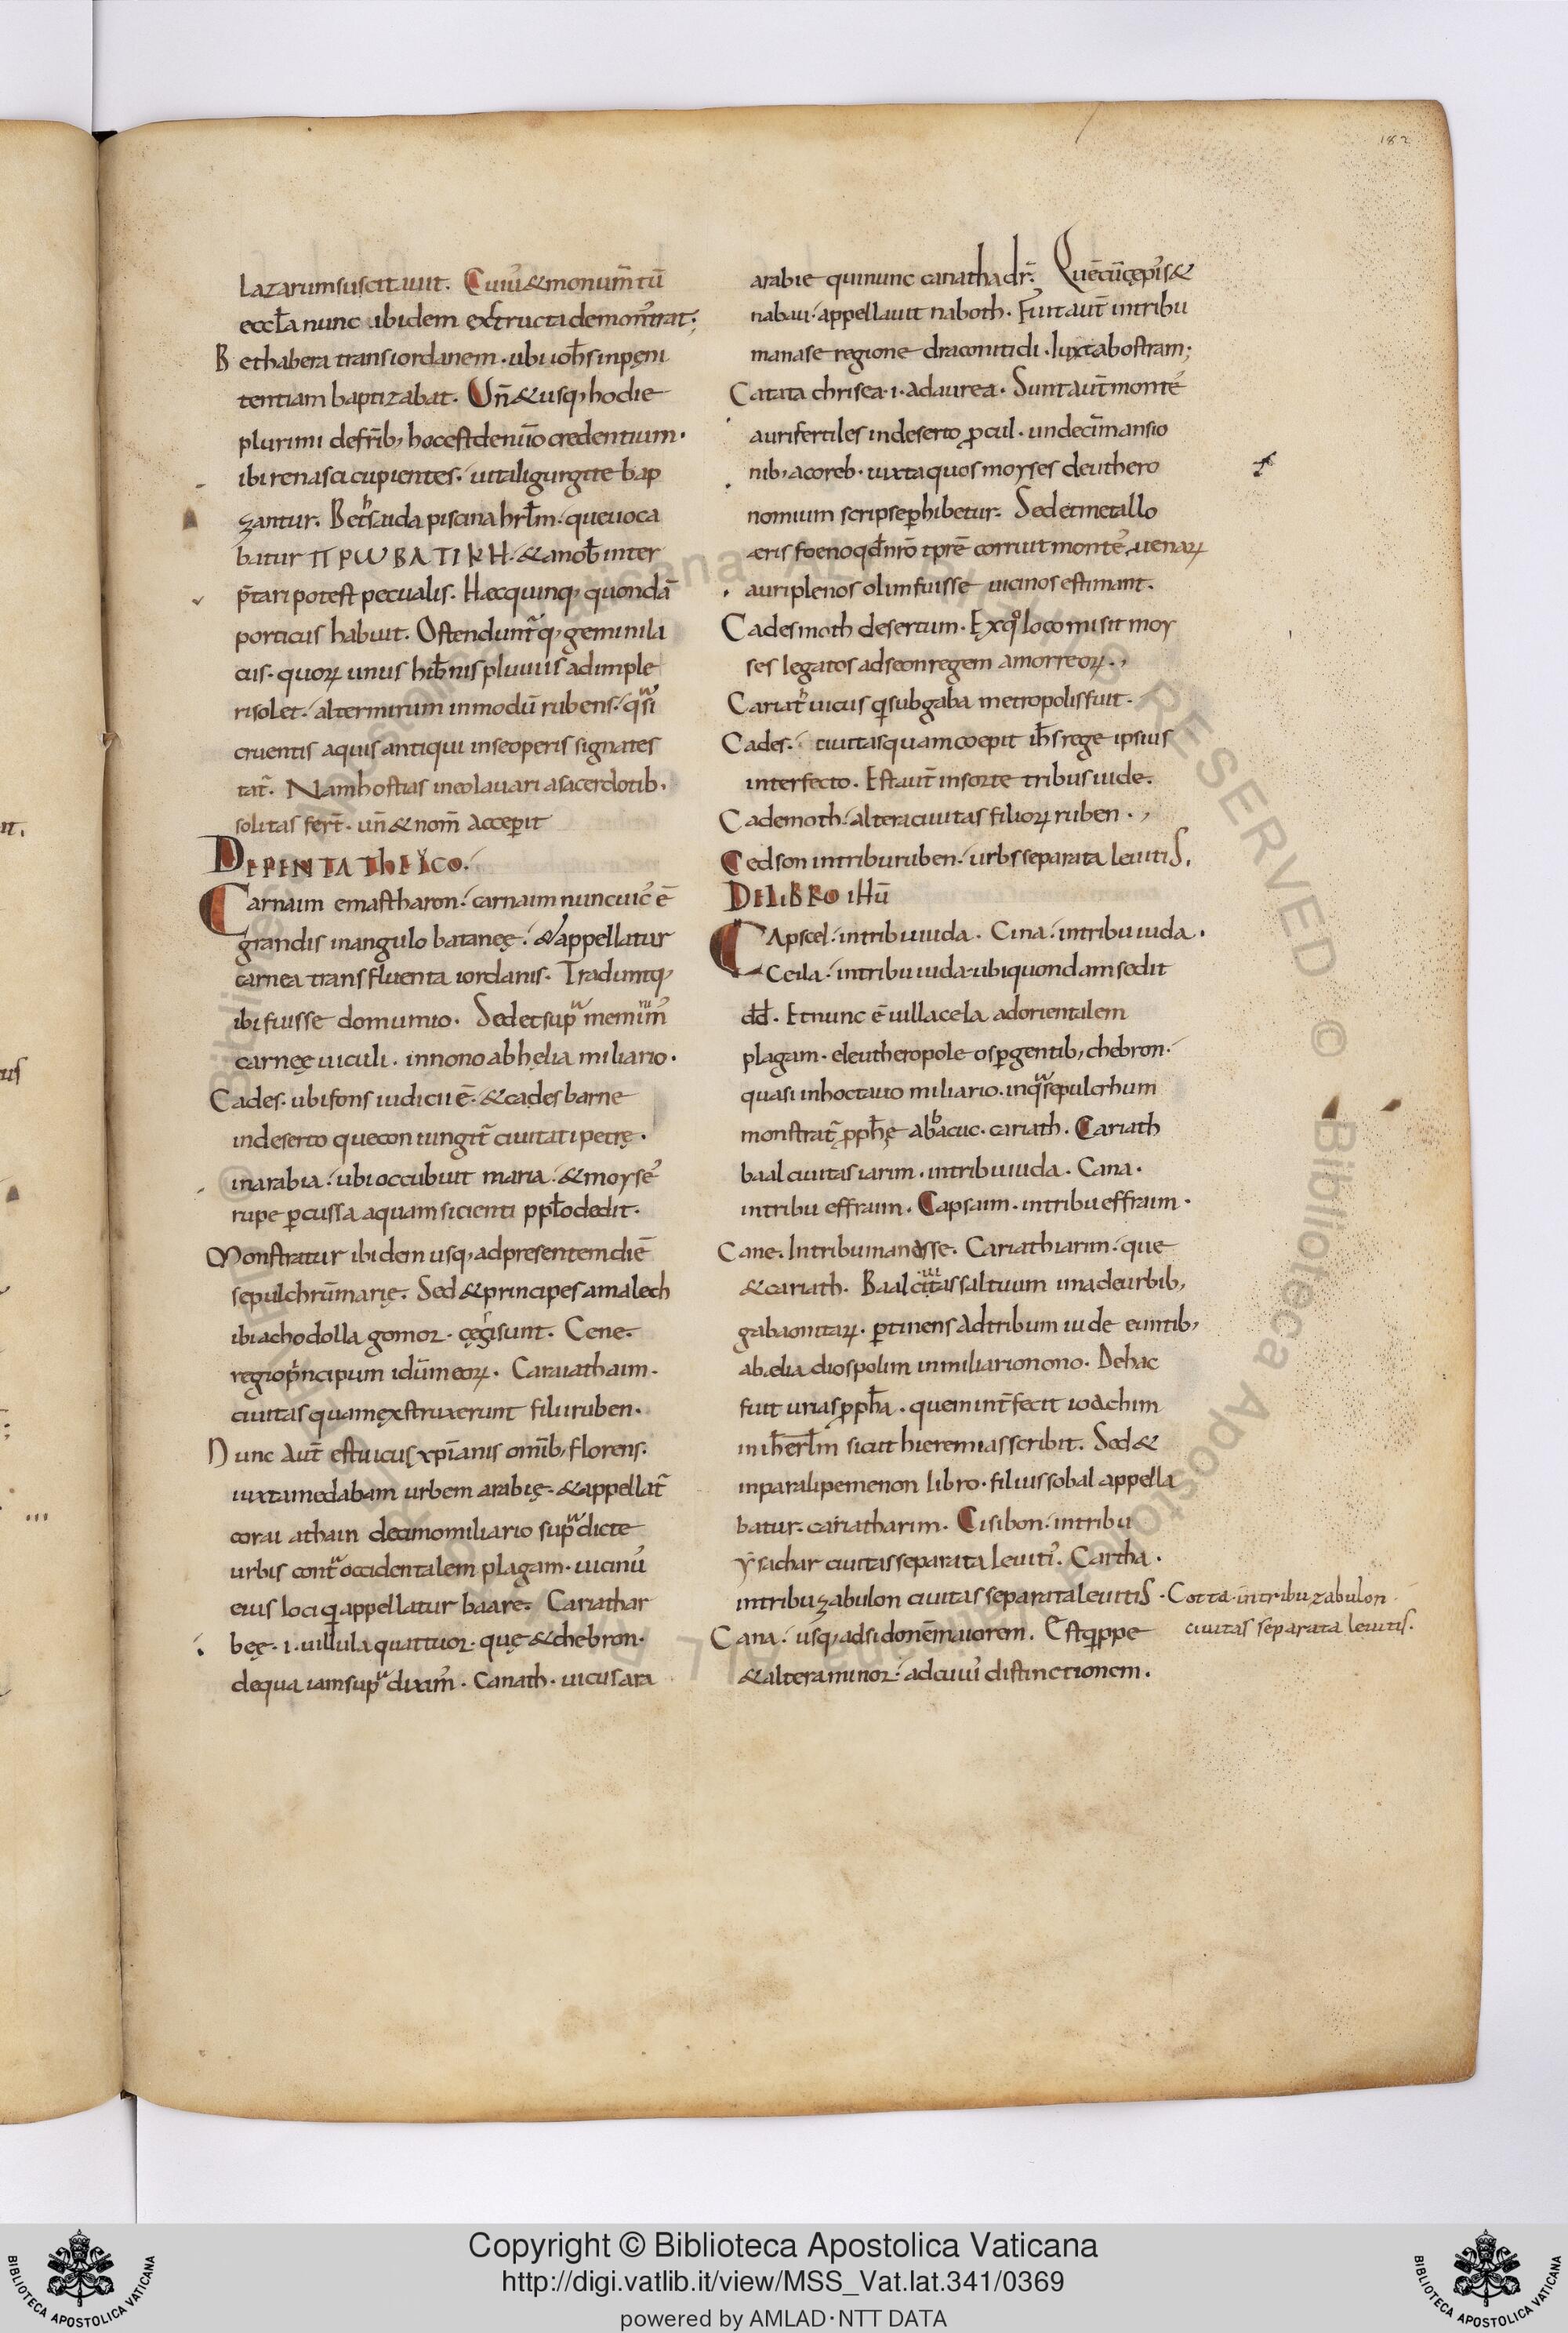 182
Lazarum suscitavit. Cuiu᾽ & monum̄tū
eccl̄a nunc ibidem extructa demon̄trat;
Bethabera trans iordanem · ubi ioh̄s in pęni
tentiam baptizabat. Un̄ & usq; hodie
plurimi de fr̄ib; hoc est de nūo credentium·
ibi renasci cupientes· vitali gurgite bap
zantur. Betsaida piscina hrl̄m· que voca
batur ΠΡΩΒΑΤΙΚΗ· & a nob̄ inter
p̄tari potest pecualis. Hęc quinq; quondā
porticus habuit. Ostendunt᷑q; gemini la
cus· quoꝝ unus hib̄nis pluviis adimple
ri solet· alter mirum in modū rubens· q̄si
cruentis aquis antiqui in se operis signa tes
tat᷑. Nam hostias in eo lavari a sacerdotib·
solitas fert᷑· un̄ & nom̄ accepit
DE PENTATHEYCO·
Carnaim emastharon· carnaim nunc vic᾽ ē
grandis in angulo batanęę· & appellatur
carnea trans fluenta iordanis. Traduntq;
ibi fuisse domum io. Sed et supᷓ meminim᾽
carnęę viculi. in nono ab hęlia miliario·
Cades· ubi fons iudicii ē· & cades barne
in deserto que coniungit᷑ civitati petrę·
in arabia· ubi occubuit maria· & moyse᾽
rupe ꝑcussa aquam sicienti ppl̄o dedit·
Monstratur ibidem usq; ad presentem diē
sepulchrūm marię. Sed & principes amalech
ibi a chodollagomor· cęsi sunt. Cene·
regio principum idūmeoꝝ. Caraiathaim·
civitas quam ęxstruxerunt filii ruben·
Nunc aut̄ est vicus xp̄ianis omib; florens·
iuxta medabam urbem arabię· & appellat᷑
coraiathain decimo miliario supᷓdicte
urbis contᷓ occidentalem plagam· vicinu᾽
eius loci qui appellatur baare. Cariathar
bęę· i· villula quattuor· quę & chebron·
de qua iam supᷓ dixim᾽. Canath· vicus ara
arabie qui nunc canatha dr̄. Quē cū cępis&
nabau· appellavit naboth. Fuit aut̄ in tribu
manase regione draconitidi· Iuxta bostram;
Catata chrisea· i· ad aurea. Sunt aut̄ monte᾽
auri fertiles in deserto ꝓcul· undecim̄ mansio
nib; a coreb· iuxta quos moyses deuthero
nomium scripse ꝑhibetur. Sed et metallo
ęris foeno qd̄ nr̄o tꝑre corruit monte᾽ venaꝝ
auri plenos olim fuisse vicinos estimant.
Cadesmoth desertum. Ex qº loco misit moy
ses legatos ad seon regem amorreoꝝ.,
Cariath vicus q̄ sub gaba metropolis fuit·
Cades· civitas quam coepit ih̄s rege ipsius
interfecto. Est aut̄ in sorte tribus iude·
Cademoth· altera civitas filioꝝ ruben.,
Cedson in tribu ruben· urbs separata levitis.
DE LIBRO IHŪ
Capscel· in tribu iuda. Cina· in tribu iuda.
Ceila· in tribu iuda· ubi quondam sedit
dd̄. Et nunc ē villa cela ad orientalem
plagam· eleutheropoleos ꝑgentib; chebron·
quasi in hoctavo miliario. in qᷓ sepulchrum
monstrat᷑ ꝓph̄ę abbacuc· cariath. Cariath
baal civitas iarim· in tribu iuda. Cana·
in tribu effraim. Capsaim· in tribu effraim.
Cane. In tribu manasse. Cariathiarim· que
& cariath. Baal civitas saltuum una de urbib;
gabaonitaꝝ· ꝑtinens ad tribum iude euntib;
ab ęlia diospolim in miliario nono. De hac
fuit urias ꝓph̄a. quem int̄fecit ioachim
in ih̄erl̄m sicut hieremias scribit. Sed &
in paralipemenon libro· filius sobal appella
batur· cariatharim. Cisibon· in tribu
ysachar civitas separata leviti᾽. Cartha·
in tribu zabulon civitas separata levitis· Cotta· in tribu zabulon
civitas separata levitis.
Cana· usq; ad sidonēm maiorem. Est q̄ppe
& altera minor· ad cuiu᾽ distinctionem.
Copyright © Biblioteca Apostolica Vaticana
http://digi.vatlib.it/view/MSS_Vat.lat.341/0369
powered by AMLAD·NTT DATA
BIBLIOTECA APOSTOLICA VATICANA
BIBLIOTECA APOSTOLICA VATICANA